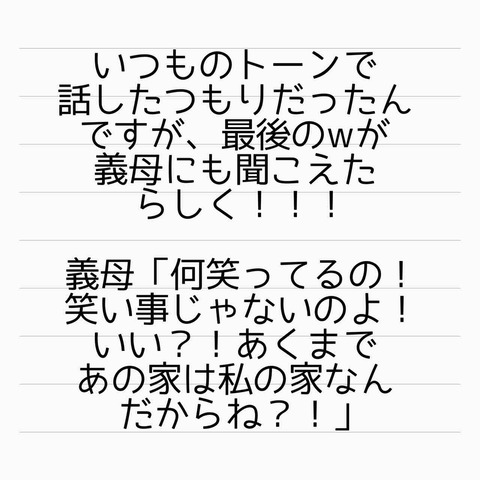 いつものトーンで
話したつもりだったん
ですが、最後のwが
義母にも聞こえた
らしく！！！
義母「何笑ってるの！
笑い事じゃないのよ！
いい？！あくまで
あの家は私の家なん
だからね？！」